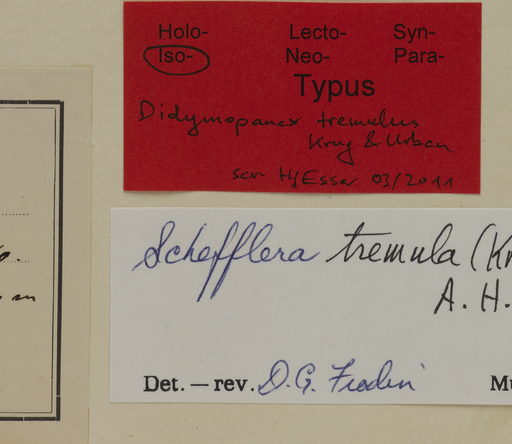 Holo- Lecto- Syn-
Iso- Neo- Para-
Typus
Didymopanax tremulus
Krug & Urban
scr. HJEsser 03/2011
Schefflera tremula (Kr
A. H.
Det. — rev. D.G. Frodin
Mu